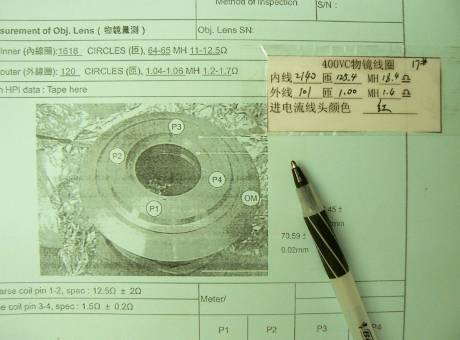 Method of Inspection
S/N :
surement of Obj. Lens (物鏡量測)
Obj. Lens SN:
inner (內線圈):1618 CIRCLES (匝), 64-65 MH 11-12.5Ω
outer (外線圈): 120 CIRCLES (匝), 1.04-1.06 MH 1.2-1.7Ω
HPI data : Tape here
400VC物镜线圈 17#
内线 2140 匝 125.4 MH 18.4 Ω
外线 101 匝 1.00 MH 1.6 Ω
进电流线头颜色 红
P3
P2
P4
P1
OM
.45 ±
70.59 ±
0.02mm
arse coil pin 1-2, spec : 12.5Ω ± 2Ω
e coil pin 3-4, spec : 1.5Ω ± 0.2Ω
Meter/
P1 P2 P3 P4